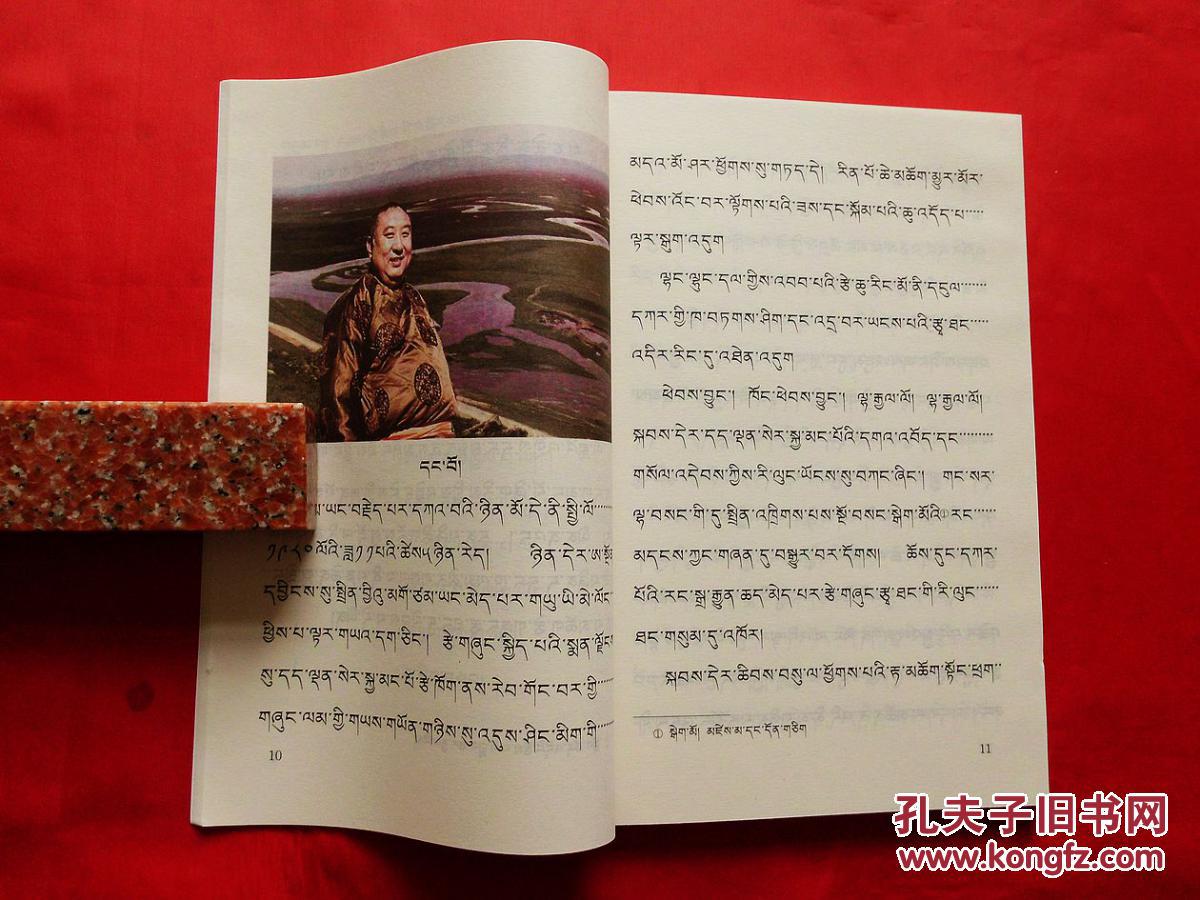 དང་པོ།
ཡང་བརྗེད་པར་དཀའ་བའི་ཉིན་མོ་དེ་ནི་སྤྱི་ལོ་་་་་་
༡༩༨༠ལོའི་ཟླ་༡༡པའི་ཚེས༥ཉིན་རེད། ཉིན་དེར་ཨ་སྔོན
དབྱིངས་སུ་སྤྲིན་བྱིའུ་མགོ་ཙམ་ཡང་མེད་པར་གཡུ་ཡི་མེ་ལོང
ཕྱིས་པ་ལྟར་གཡའ་དག་ཅིང་། རྩེ་གཞུང་སྐྱིད་པའི་སྨན་ལྗོངས
སུ་དད་ལྡན་སེར་སྐྱ་མང་པོ་རྩེ་ཁོག་ནས་རེབ་གོང་བར་གྱི་་་་
གཞུང་ལམ་གྱི་གཡས་གཡོན་གཉིས་སུ་འདུས་ཤིང་མིག་གི་་་་་
10
མདའ་མོ་ཤར་ཕྱོགས་སུ་གཏད་དེ། རིན་པོ་ཆེ་མཆོག་མྱུར་མོར་
ཕེབས་འོང་བར་ལྟོགས་པའི་ཟས་དང་སྐོམ་པའི་ཆུ་འདོད་པ་་་་་
ལྟར་སྒུག་འདུག
ལྷང་ལྷུང་དལ་གྱིས་འབབ་པའི་རྩེ་ཆུ་རིང་མོ་ནི་དངུལ་་་་་་་
དཀར་གྱི་ཁ་བཏགས་ཤིག་དང་འདྲ་བར་ཡངས་པའི་རྩྭ་ཐང་་་་་
འདིར་རིང་དུ་འཐེན་འདུག
ཕེབས་བྱུང་། ཁོང་ཕེབས་བྱུང་། ལྷ་རྒྱལ་ལོ། ལྷ་རྒྱལ་ལོ།
སྐབས་དེར་དད་ལྡན་སེར་སྐྱ་མང་པོའི་དགའ་འབོད་དང་་་་་་་་
གསོལ་འདེབས་ཀྱིས་རི་ལུང་ཡོངས་སུ་བཀང་ཞིང་། གང་སར་
ལྷ་བསང་གི་དུ་སྤྲིན་འཁྲིགས་པས་སྔོ་བསང་སྒེག་མོའི①རང་་་་་་
མདངས་ཀྱང་གཞན་དུ་བསྒྱུར་བར་དོགས། ཆོས་དུང་དཀར་
པོའི་རང་སྒྲ་རྒྱུན་ཆད་མེད་པར་རྩེ་གཞུང་རྩྭ་ཐང་གི་རི་ལུང་་་་་་
ཐང་གསུམ་དུ་འཁོར།
སྐབས་དེར་ཆིབས་བསུ་ལ་ཕྱོགས་པའི་རྟ་མཆོག་སྟོང་ཕྲག་་
① སྒེག་མོ། མཛེས་མ་དང་དོན་གཅིག
11
孔夫子旧书网
www.kongfz.com